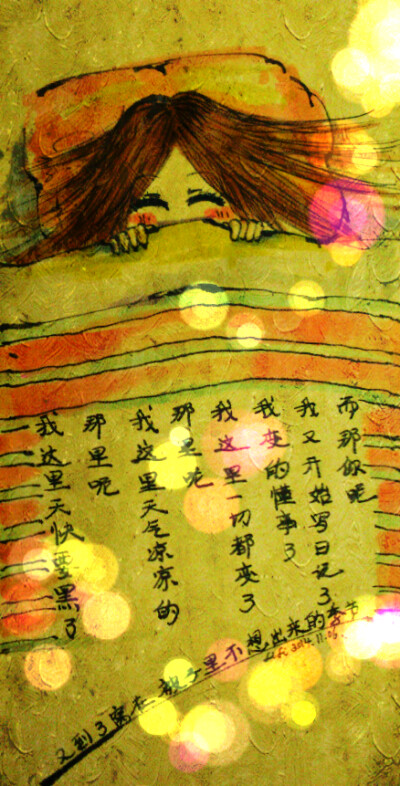 我这里天快要黑了
那里呢
我这里天气凉凉的
那里呢
我这里一切都变了
我变的懂事了
我又开始写日记了
而那你呢
又到了窝在被子里不想出来的季节